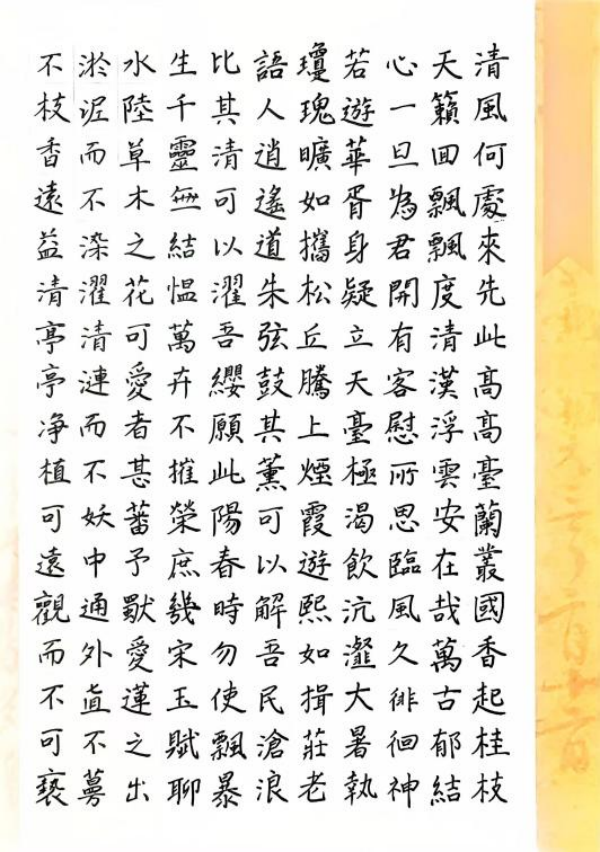 清風何處來先此髙髙臺蘭叢國香起桂枝
天籟囬飄飄度清漢浮雲安在哉萬古郁結
心一旦為君開有客慰所思臨風久徘徊神
若遊華胥身疑立天臺極渴飲沆瀣大暑執
瓊瑰曠如攜松丘騰上煙霞遊熙如揖莊老
語人逍遙道朱弦鼓其薰可以解吾民滄浪
比其清可以濯吾纓願此陽春時勿使飄暴
生千靈無結愠萬卉不摧榮庶幾宋玉賦聊
水陸草木之花可愛者甚蕃予獸愛蓮之出
淤泥而不染濯清漣而不妖中通外直不蔓
不枝香遠益清亭亭净植可遠觀而不可褻